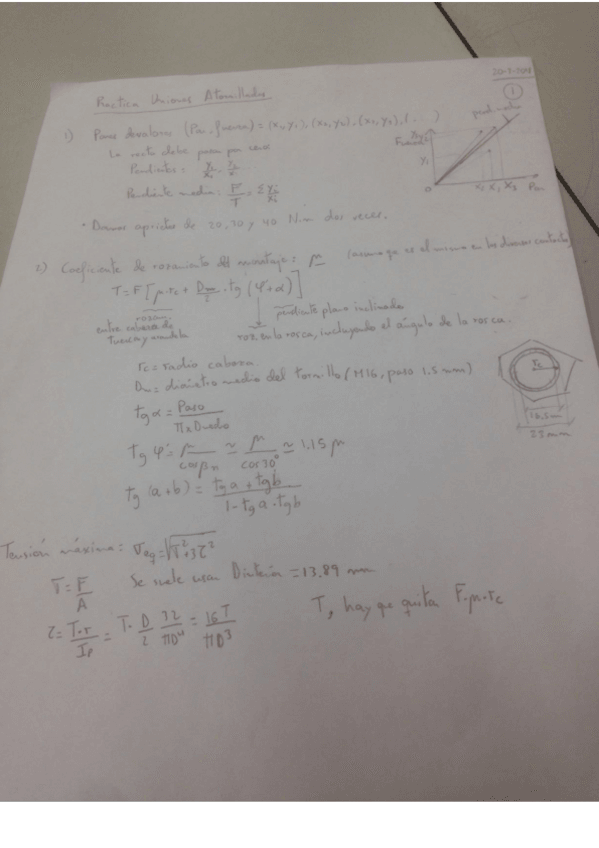 Práctica Uniones Atornilladas
①
1) Pares de valores (Par, fuerza) = (x₁, y₁), (x₂, y₂), (x₃, y₃), (...)
La recta debe pasar por cero
Pendientes: y₁/x₁, y₂/x₂
Pendiente media: F/T = Σ yᵢ/xᵢ
Fuerza
y₁
0
x₁ x₂ x₃ Par
pend. media
• Damos aprietes de 20, 30 y 40 N.m dos veces.
2) Coeficiente de rozamiento del montaje: μ (asumo que es el mismo en los diversos contactos)
T = F [μ·rc + Dm/2 · tg (φ' + α)]
rozam. entre cabeza de tuerca y arandela
pendiente plano inclinado
roz. en la rosca, incluyendo el ángulo de la rosca.
rc = radio cabeza.
Dm = diámetro medio del tornillo (M16, paso 1.5 mm)
tg α = Paso / π x Dmedio
tg φ' = μ / cos βn ≃ μ / cos 30° ≃ 1.15 μ
tg (a+b) = tg a + tg b / 1 - tg a · tg b
rc
22 mm
Tensión máxima: σeq = √σ² + 3τ²
σ = F/A Se suele usar Dinterior = 13.89 mm
τ = T·r/Ip = T · D/2 · 32/πD⁴ = 16T/πD³
T, hay que quitar F·μ·rc